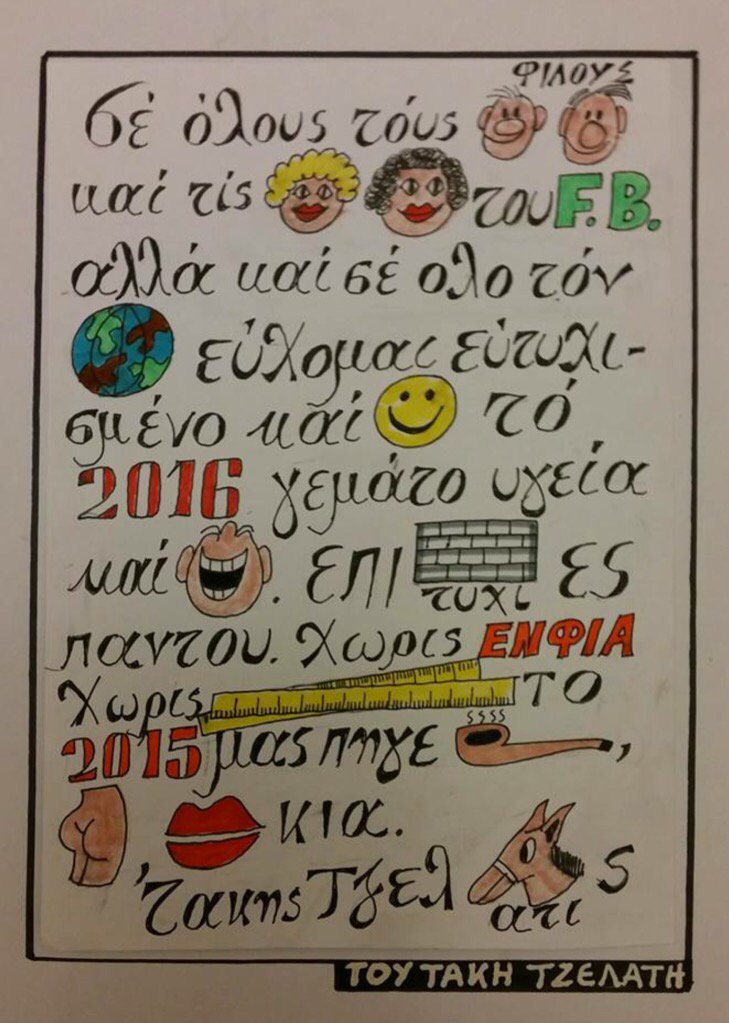 ΦΙΛΟΥΣ
Σέ όλους τούς
καί τίς του F.B.
αλλά καί σέ ολο τόν
εύχομαι εύτυχι-
σμένο καί τό
2016 γεμάτο υγεία
καί . ΕΠΙ τυχι ΕΣ
παντου. Χωρις ΕΝΦΙΑ
Χωρις ΤΟ
2015 μας πηγε ssss ,
κια.
Τακης Τζελ ατι ς
ΤΟΥ ΤΑΚΗ ΤΖΕΛΑΤΗ